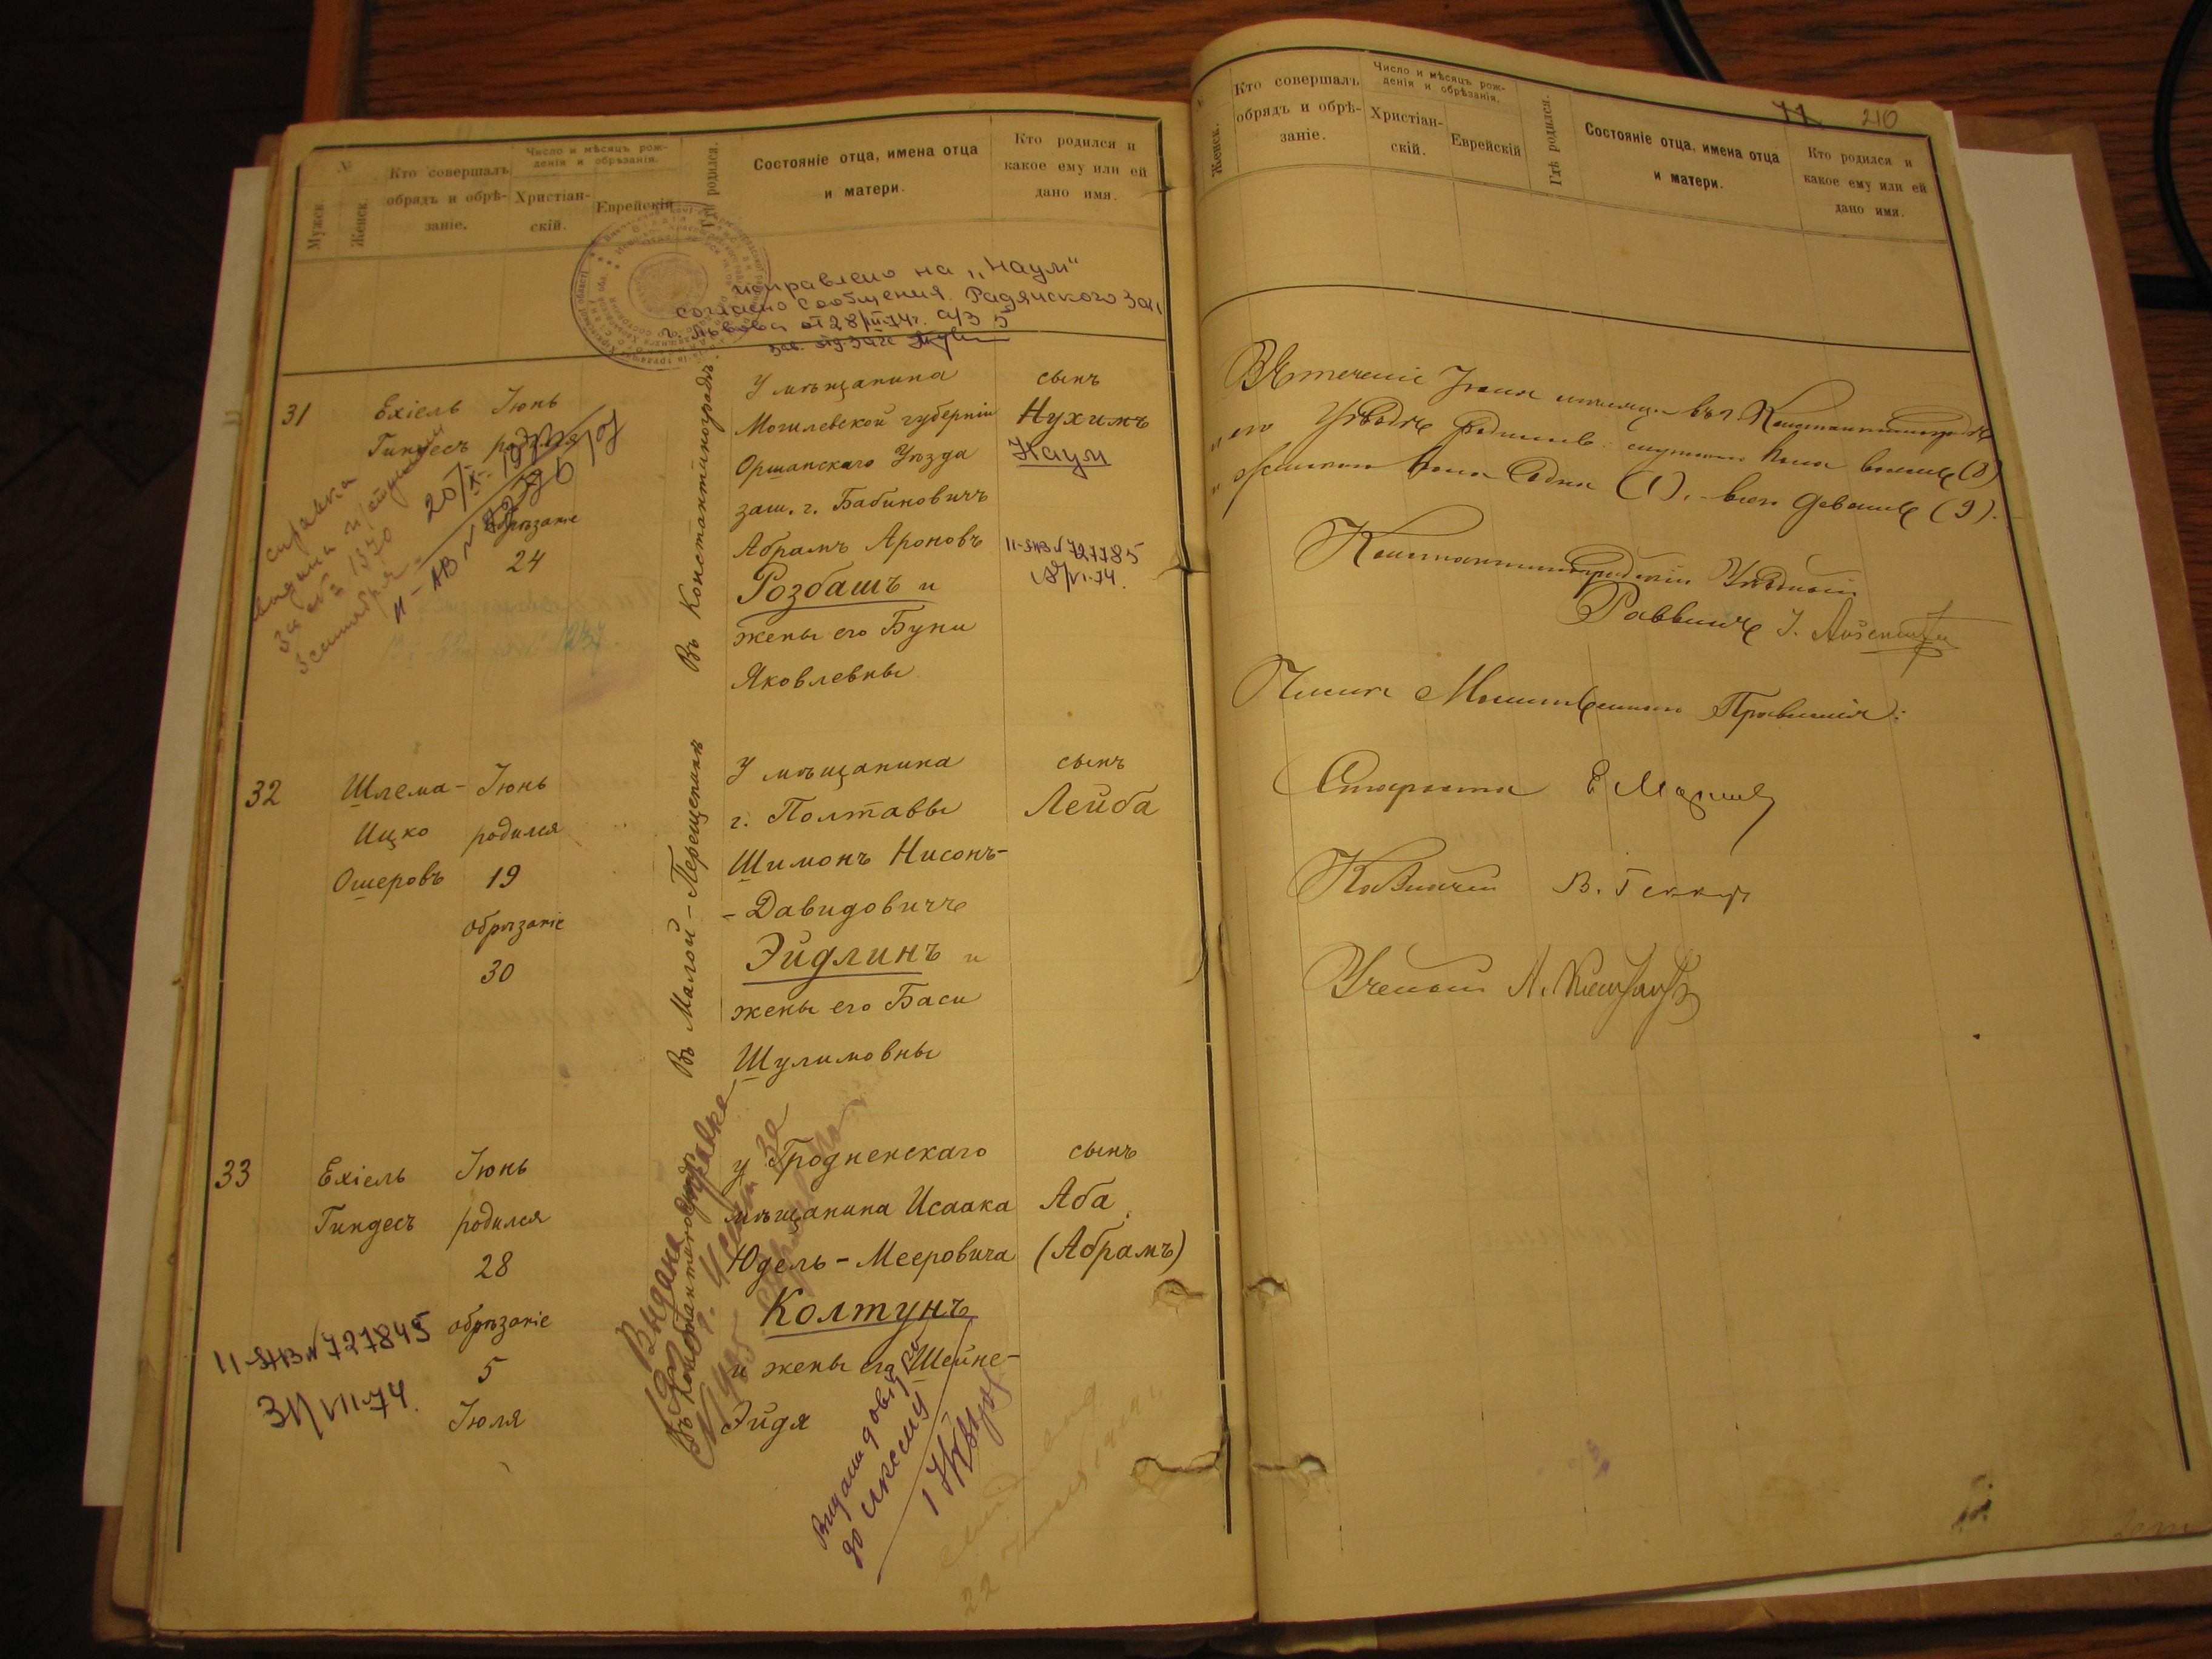 №
Мужск.
Женск.
Кто совершалъ
обрядъ и обрѣ-
заніе.
Число и мѣсяцъ рож-
денія и обрѣзанія.
Христіан-
скій.
Еврейскій
Гдѣ родился.
Состояніе отца, имена отца
и матери.
Кто родился и
какое ему или ей
дано имя.
исправлено на „Наум“
согласно сообщения Радянского Заг.
г. Львова от 28/III-74г. а/з 5
зав. отд. загс
31
Ехіель
Гиндесъ
Іюнь
родился
обрѣзаніе
24
Въ Константиноградѣ
У мѣщанина
Могилевской губерніи
Оршанскаго Уѣзда
заш. г. Бабиновичъ
Абрамъ Ароновъ
Розбашъ и
жены его Буни
Яковлевны
сынъ
Нухимъ
Наум
II-ЯНВ № 727785
справка
выдана
за № 1370
3 сентября
20/X-
II-АВ №
32
Шлема-
Ицко
Ошеровъ
Іюнь
родился
19
обрѣзаніе
30
Въ Малой-Перещепинѣ
У мѣщанина
г. Полтавы
Шимонъ Нисонъ-
-Давидовичъ
Эйдлинъ и
жены его Баси
Шулимовны
сынъ
Лейба
33
Ехіель
Гиндесъ
Іюнь
родился
28
обрѣзаніе
5
Іюля
Въ Константиноградѣ
у Гродненскаго
мѣщанина Исаака
Юдель-Мееровича
Колтунъ
и жены его Шейне-
Эйдя
сынъ
Аба
(Абрамъ)
II-ЯНВ № 727845
31/VII-74.
Выдана
справка
за
22
71
210
Женск.
Кто совершалъ
обрядъ и обрѣ-
заніе.
Число и мѣсяцъ рож-
денія и обрѣзанія.
Христіан-
скій.
Еврейскій
Гдѣ родился.
Состояніе отца, имена отца
и матери.
Кто родился и
какое ему или ей
дано имя.
Въ теченіе Іюня мѣсяца въ г. Константиноградѣ
и его Уѣздѣ родилось: мужского пола восемь (8)
и женскаго пола одна (1), всего девять (9).
Константиноградскій Уѣздный
Раввинъ
Члены Молитвеннаго Правленія:
Староста
Казначей В. Геккер
Ученый А.